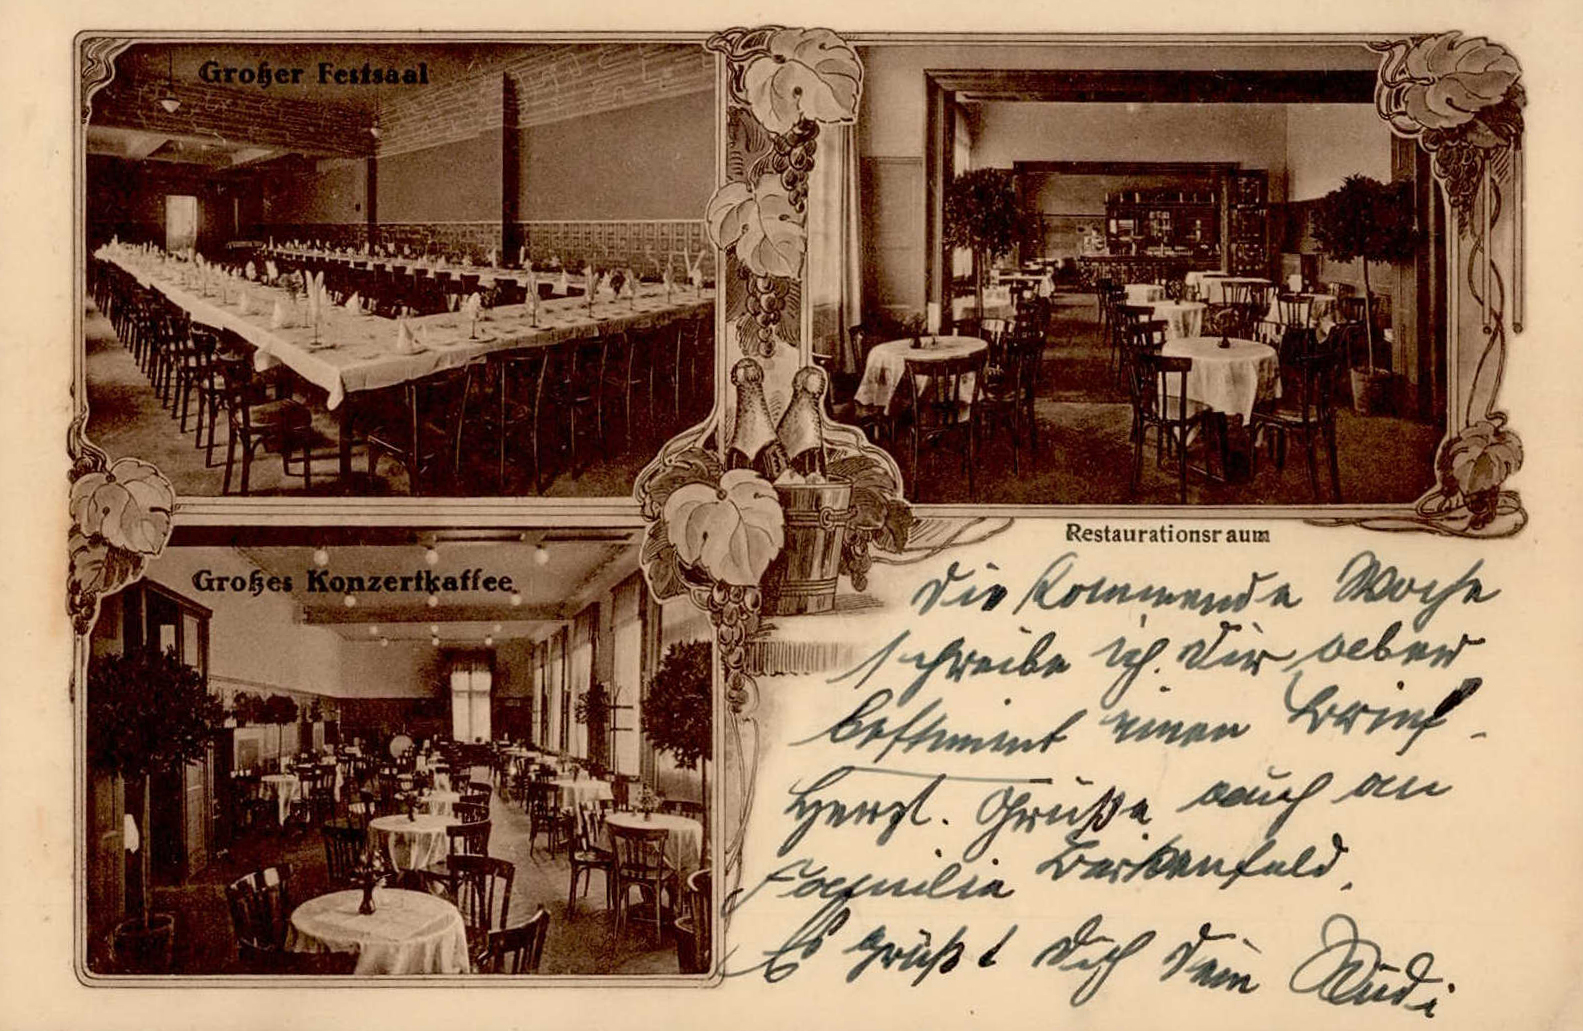 Großer Festsaal
Restaurationsraum
Großes Konzertkaffee
Die kommende Woche
schreibe ich Dir aber
bestimmt einen Brief.
Herzl. Grüße auch an
Familie Birkenfeld.
Es grüßt Dich Dein Rudi